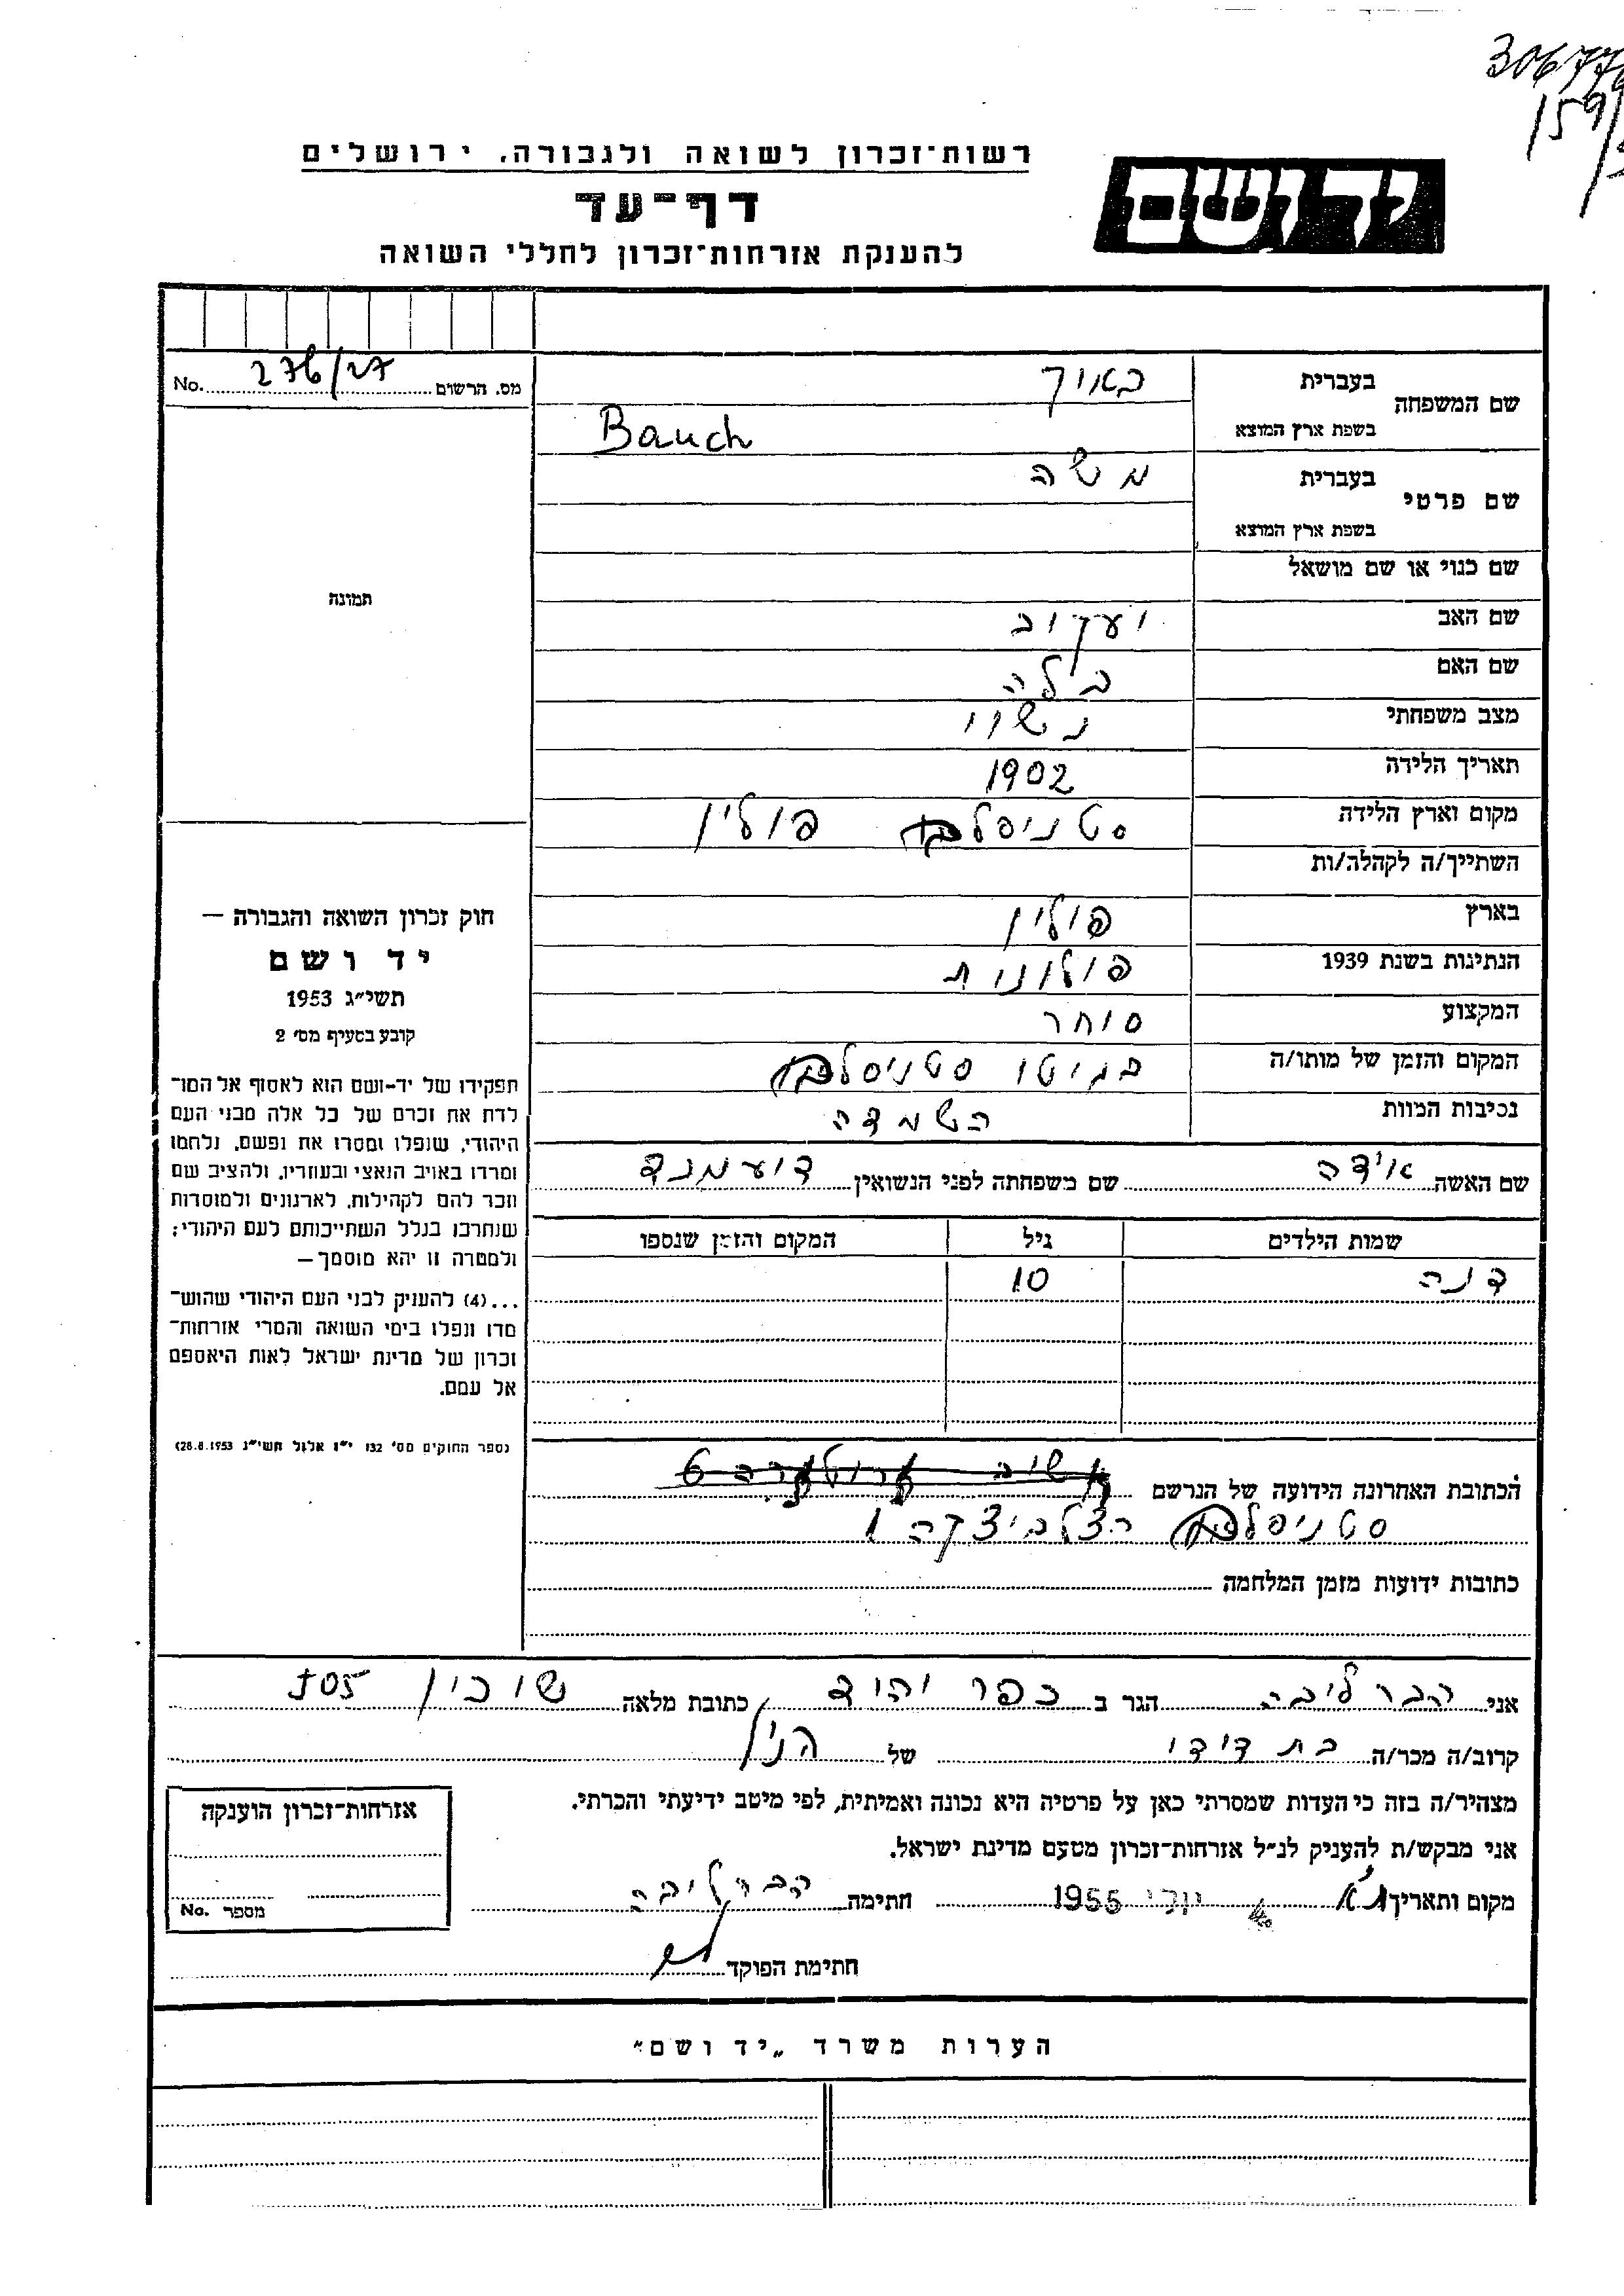 306776
159/
רשות־זכרון לשואה ולגבורה, ירושלים
יד ושם
דף־עד
להענקת אזרחות־זכרון לחללי השואה
שם המשפחה בעברית באוך
בשפת ארץ המוצא Bauch
שם פרטי בעברית משה
בשפת ארץ המוצא
שם כנוי או שם מושאל
שם האב יעקוב
שם האם בלה
מצב משפחתי נשוי
תאריך הלידה 1902
מקום וארץ הלידה פולין
השתייך/ה לקהלה/ות
בארץ פולין
הנתינות בשנת 1939 פולונית
המקצוע סוחר
המקום והזמן של מותו/ה בגיטו
נסיבות המוות השמדה
מס. הרשום 276/27 No.
תמונה
חוק זכרון השואה והגבורה —
יד ושם
תשי״ג 1953
קובע בסעיף מס׳ 2
תפקידו של יד-ושם הוא לאסוף אל המו־
לדת את זכרם של כל אלה מבני העם
היהודי, שנפלו ומסרו את נפשם, נלחמו
ומרדו באויב הנאצי ובעוזריו, ולהציב שם
וזכר להם לקהילות, לארגונים ולמוסדות
שנחרבו בגלל השתייכותם לעם היהודי;
ולמטרה זו יהא מוסמך—
...(4) להעניק לבני העם היהודי שהוש־
מדו ונפלו בימי השואה והמרי אזרחות־
זכרון של מדינת ישראל לאות היאספם
אל עמם.
(ספר החוקים מס׳ 132 י״ז אלול תשי״ג 28.8.1953)
שם האשה אידה שם משפחתה לפני הנשואין דיעמנד
שמות הילדים גיל המקום והזמן שנספו
דנה 10
הכתובת האחרונה הידועה של הנרשם
1
כתובות ידועות מזמן המלחמה
אני הבר ליבה הגר ב כפר יהוד כתובת מלאה שוכין 505
קרוב/ה מכר/ה בת דידי של הנ״ל
מצהיר/ה בזה כי העדות שמסרתי כאן על פרטיה היא נכונה ואמיתית, לפי מיטב ידיעתי והכרתי.
אני מבקש/ת להעניק לנ״ל אזרחות־זכרון מטעם מדינת ישראל.
מקום ותאריך ת״א יוני 1955 חתימה הבר ליבה
חתימת הפוקד
אזרחות־זכרון הוענקה
מספר No.
הערות משרד „יד ושם״